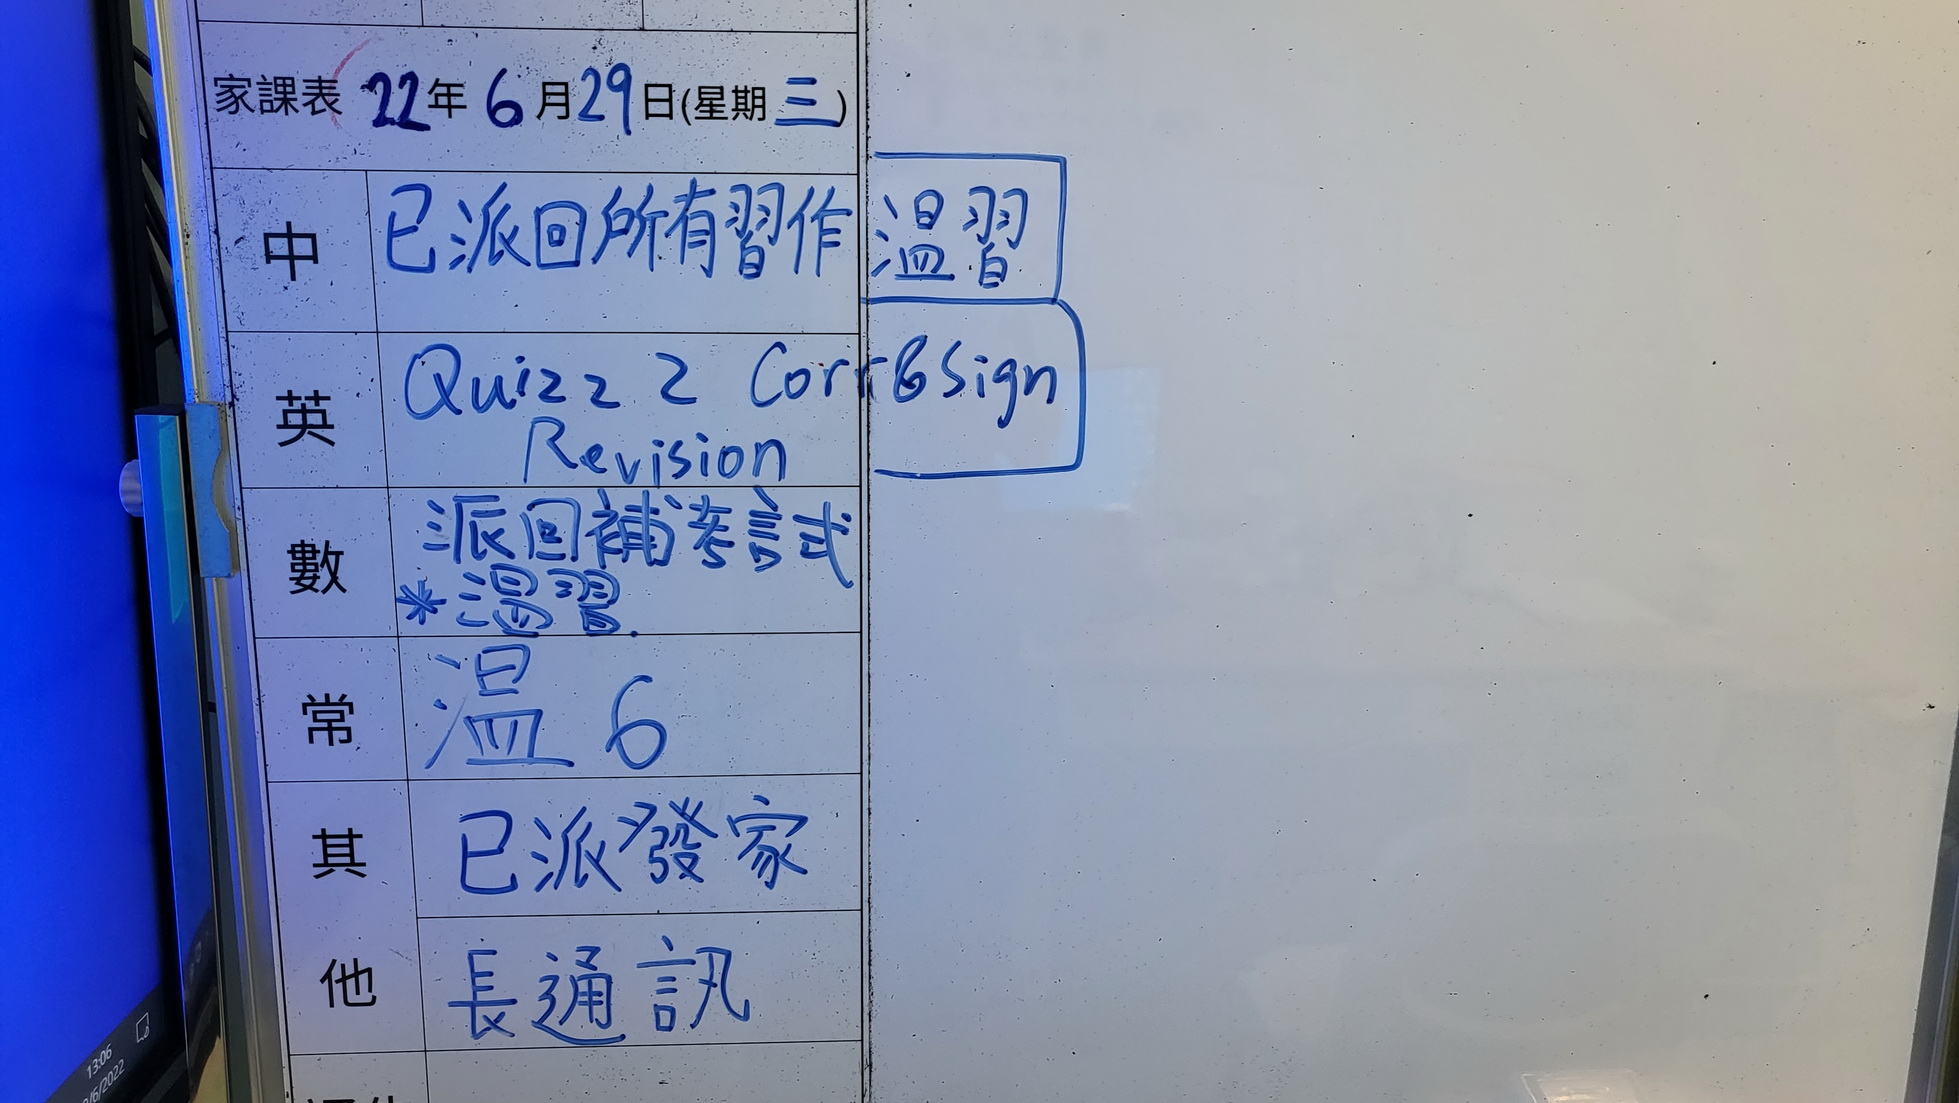 家課表 22年 6月29日(星期三)
中 已派回所有習作 温習
英 Quizz 2 Corr & Sign
Revision
數 派回補考試
*温習.
常 温 6
其 已派發家
他 長通訊
13:06
/6/2022